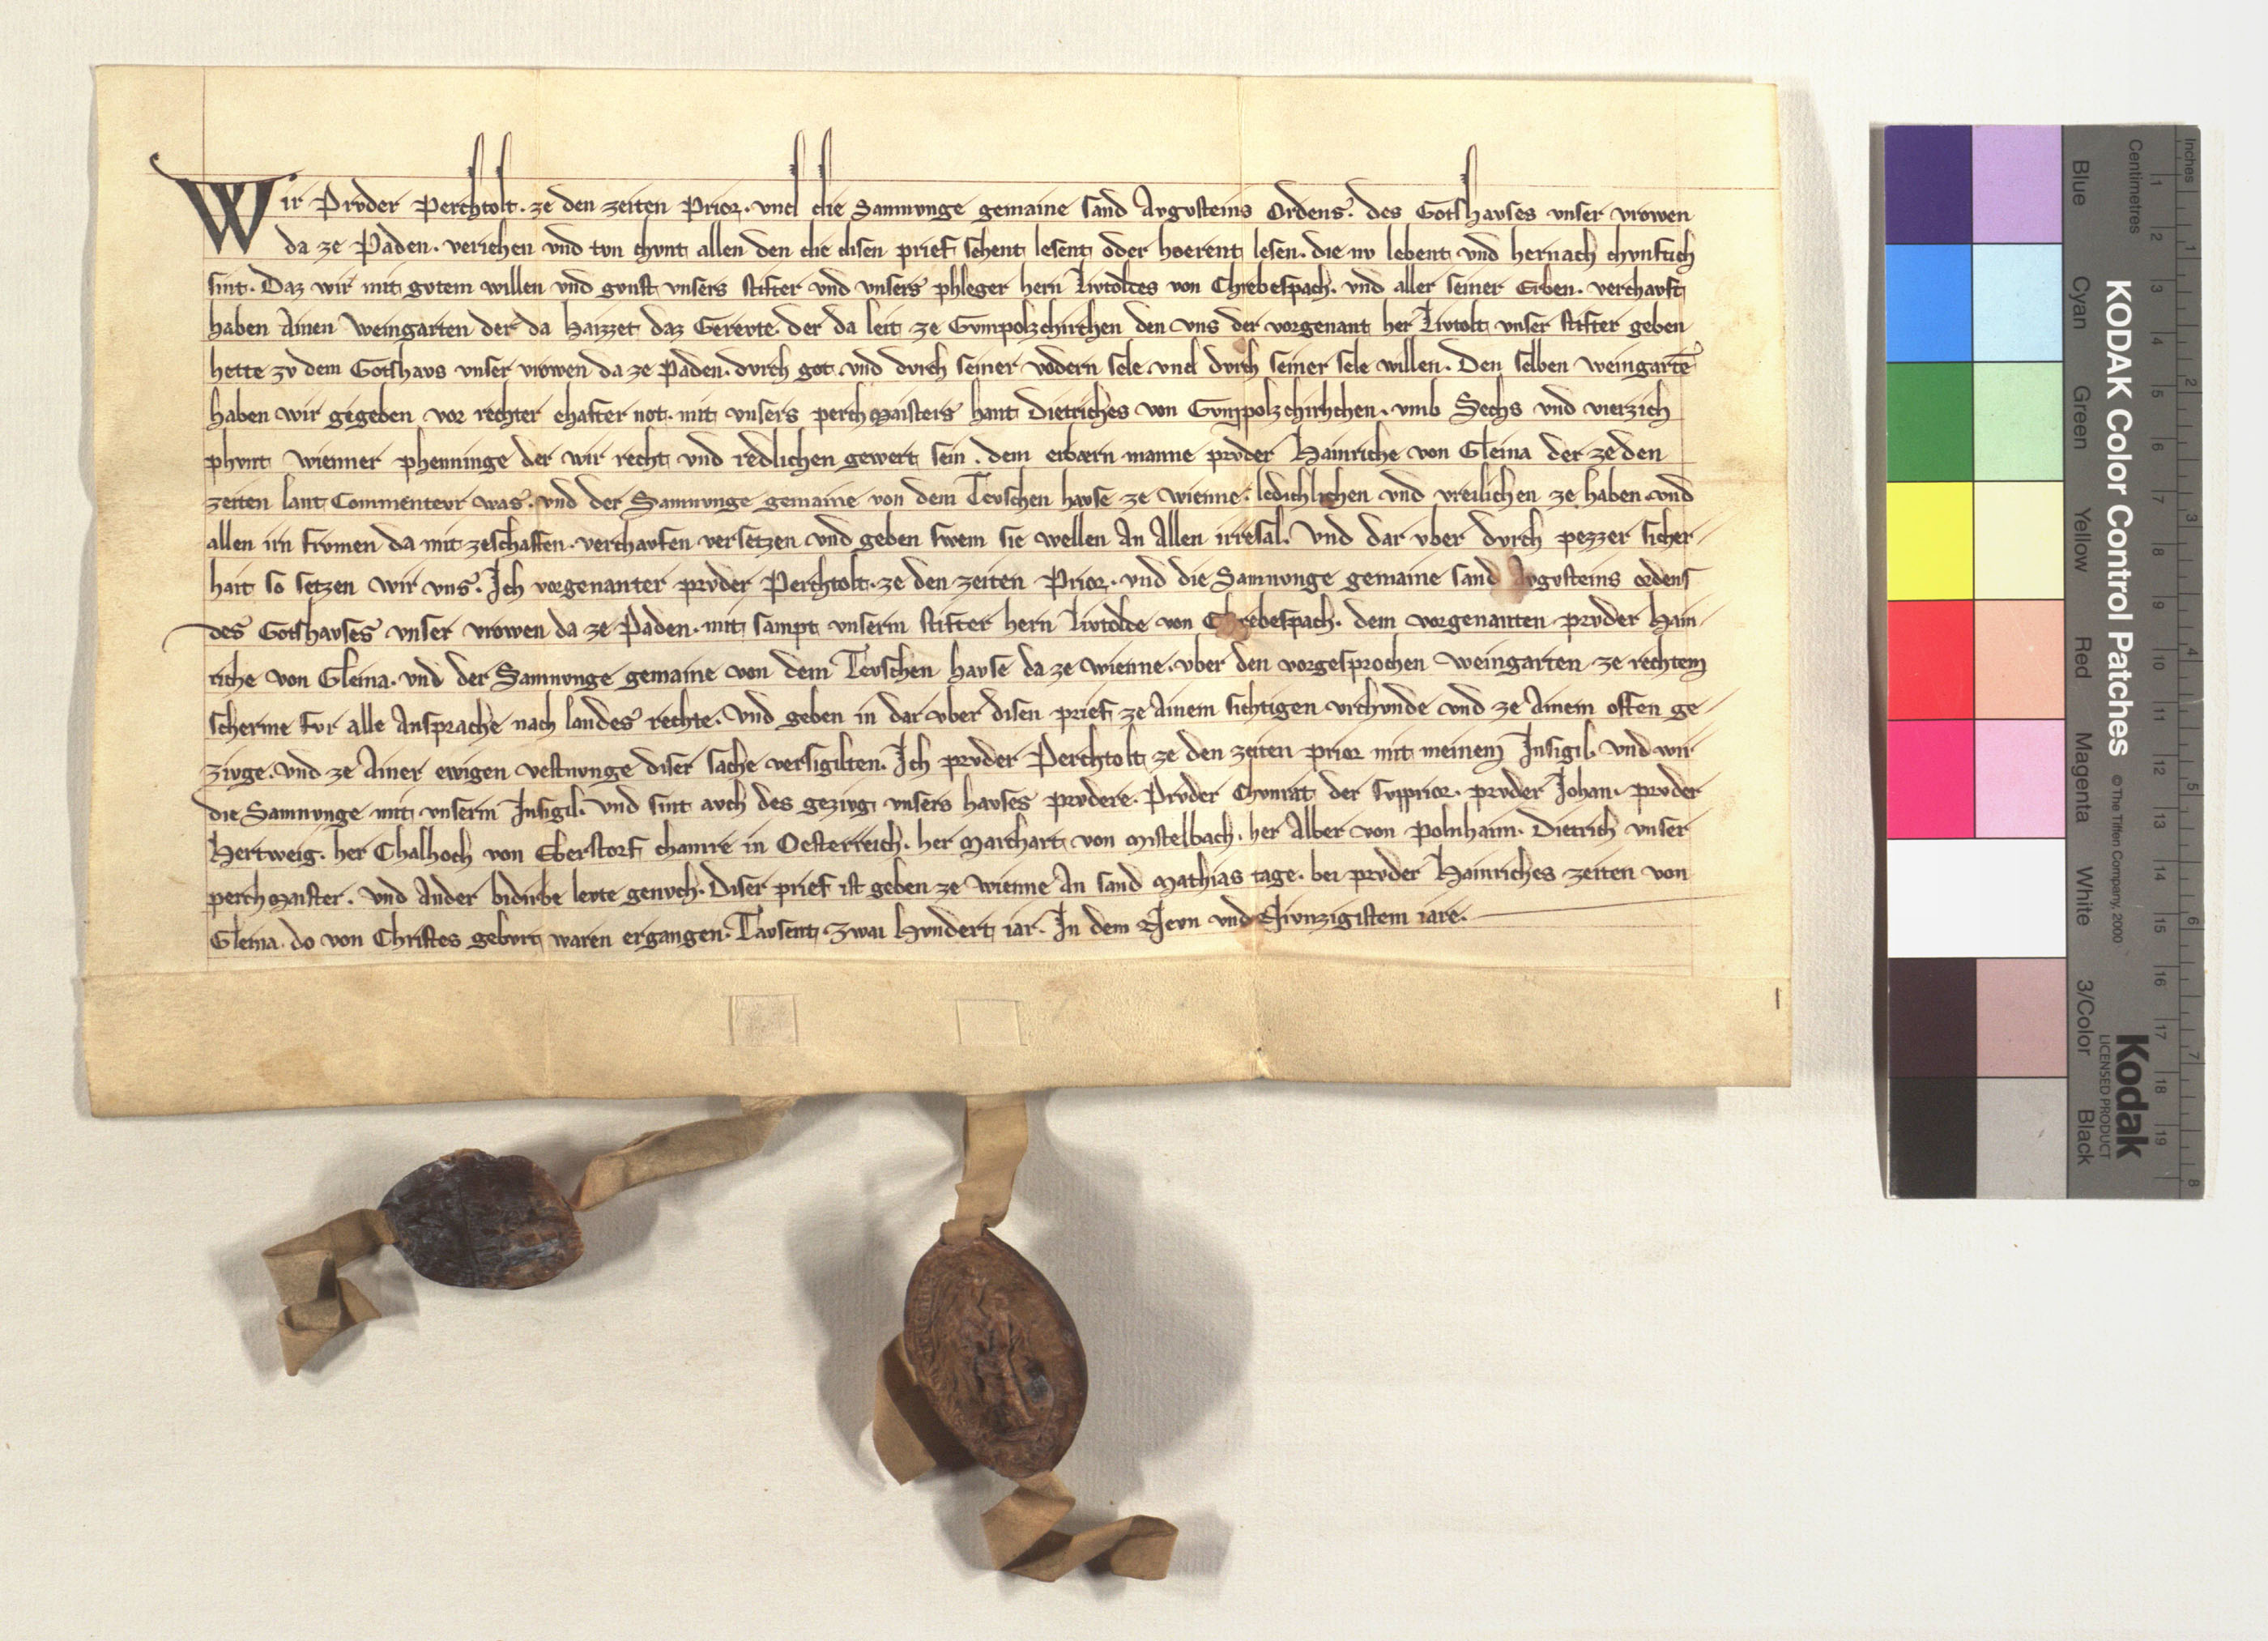 Wir Prvder Perchtolt. ze den zeiten Prior. vnd die Samnvnge gemaine sand Avgvsteins Ordens. des Gotshavses vnser vrowen
da ze Paden. veriehen vnd tvn chvnt allen den die disen prief sehent lesent oder hoerent lesen. die nv lebent vnd hernach chvnftich
sint. Daz wir mit gvtem willen vnd gvnst vnsers stifter vnd vnsers phleger hern Livtoldes von Chrebespach. vnd aller seiner Erben. verchavft
haben Ainen weingarten der da haizzet daz Gerevte. der da leit ze Gvmpolzchirchen den vns der vorgenant her Livtolt vnser stifter geben
hette zv dem Gotshavs vnser vrowen da ze Paden. dvrch got vnd dvrch seiner vodern sele vnd dvrch seiner sele willen. Den selben weingartē
haben wir gegeben vor rechter ehafter not. mit vnsers perchmaisters hant Dietriches von Gvmpolzchirhchen. vmb Sechs vnd vierzich
phvnt wienner phenninge der wir recht vnd redlichen gewert sein. dem erbærn manne prvder Hainriche von Gleina der ze den
zeiten lant Commentevr was. vnd der Samnvnge gemaine von dem Tevschen havse ze wienne. ledichlichen vnd vreilichen ze haben vnd
allen irn frvmen da mit zeschaffen. verchavfen versetzen vnd geben swem sie wellen An Allen irresal. Vnd dar vber dvrch pezzer sicher
hait so setzen wir vns. Ich vorgenanter prvder Perchtolt. ze den zeiten Prior. vnd die Samnvnge gemaine sand Avgvsteins ordens
des Gotshavses vnser vrowen da ze Paden. mit sampt vnserm stifter hern Livtolde von Chrebespach. dem vorgenanten prvder Hain
riche von Gleina. vnd der Samnvnge gemaine von dem Tevschen havse da ze wienne. vber den vorgesprochen weingarten ze rechtem
scherme fvr alle Ansprache nach landes rechte. Vnd geben in dar vber disen prief ze Ainem sichtigen vrchvnde vnd ze Ainem offen ge
zivge. vnd ze Ainer ewigen vestnvnge diser sache versigilten. Ich prvder Perchtolt ze den zeiten prior mit meinem Insigil. Vnd wir
die Samnvnge mit vnserm Insigil. Vnd sint avch des gezivg vnsers havses prvdere. Prvder Chvnrat der svpprior. prvder Johan. prvder
Hertweig. her Chalhoch von Eberstorf chamre in Oesterreich. her Marchart von Mistelbach. her Alber von Polnhaim. Dietrich vnser
perchmaister. vnd Ander bidirbe levte genvch. Diser prief ist geben ze wienne An sand Mathias tage. bei prvder Hainriches zeiten von
Gleina. do von Christes gebvrt waren ergangen. Tavsent zwai hvndert iar. In dem Nevn vnd Nivnzigistem iare.
KODAK Color Control Patches
© The Tiffen Company, 2000
Kodak
LICENSED PRODUCT
Blue Cyan Green Yellow Red Magenta White 3/Color Black
Centimetres 1 2 3 4 5 6 7 8 9 10 11 12 13 14 15 16 17 18 19
Inches 1 2 3 4 5 6 7 8